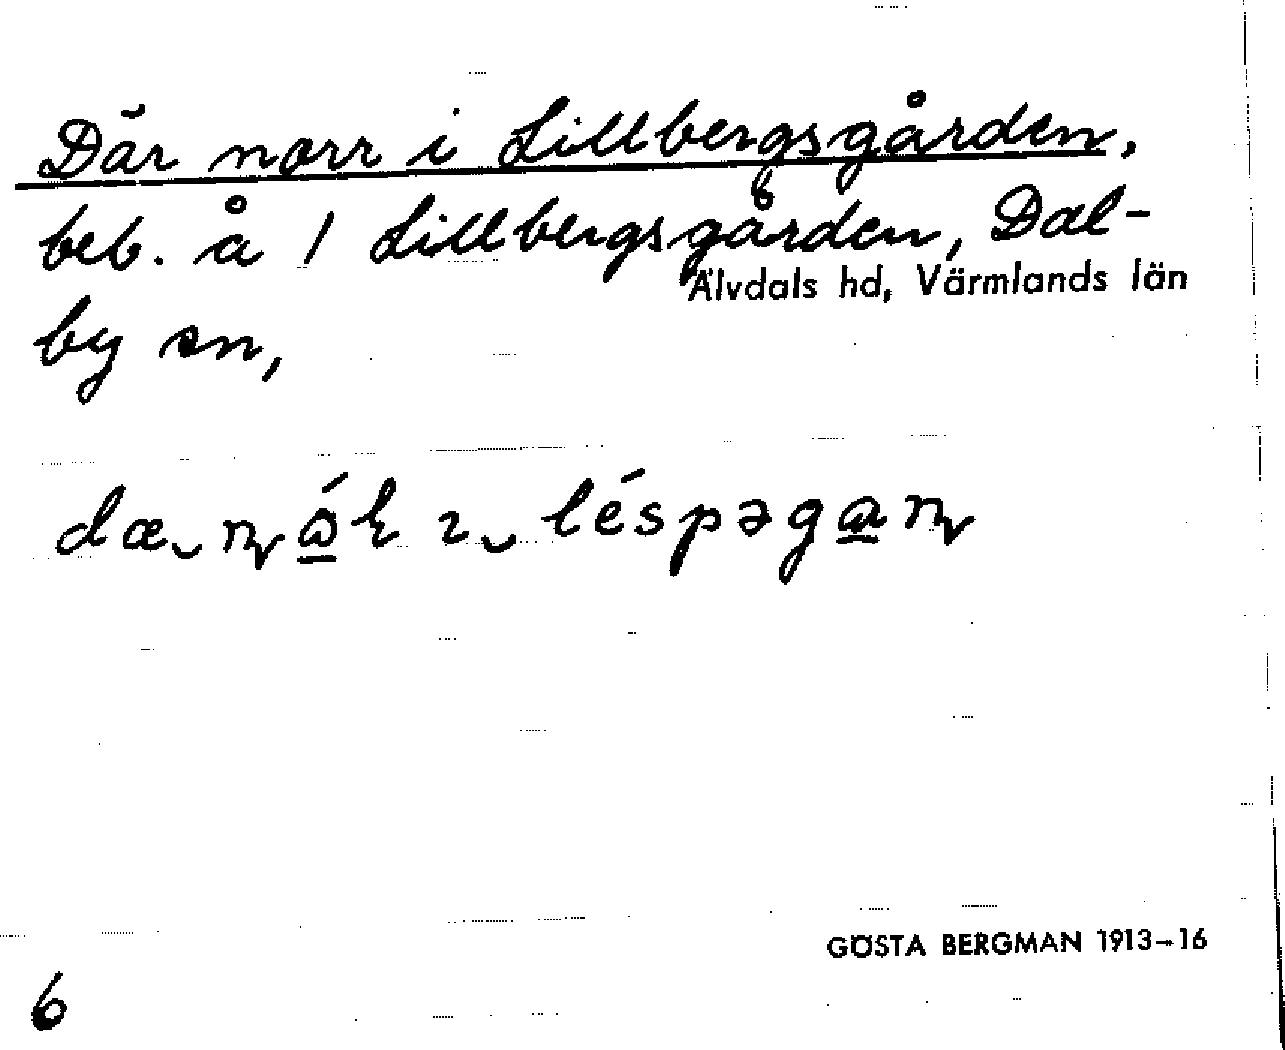 Där norr i Lillbergsgården,
beb. å 1 Lillbergsgården, Dal-
Älvdals hd, Värmlands län
by sn,
GÖSTA BERGMAN 1913-16
6